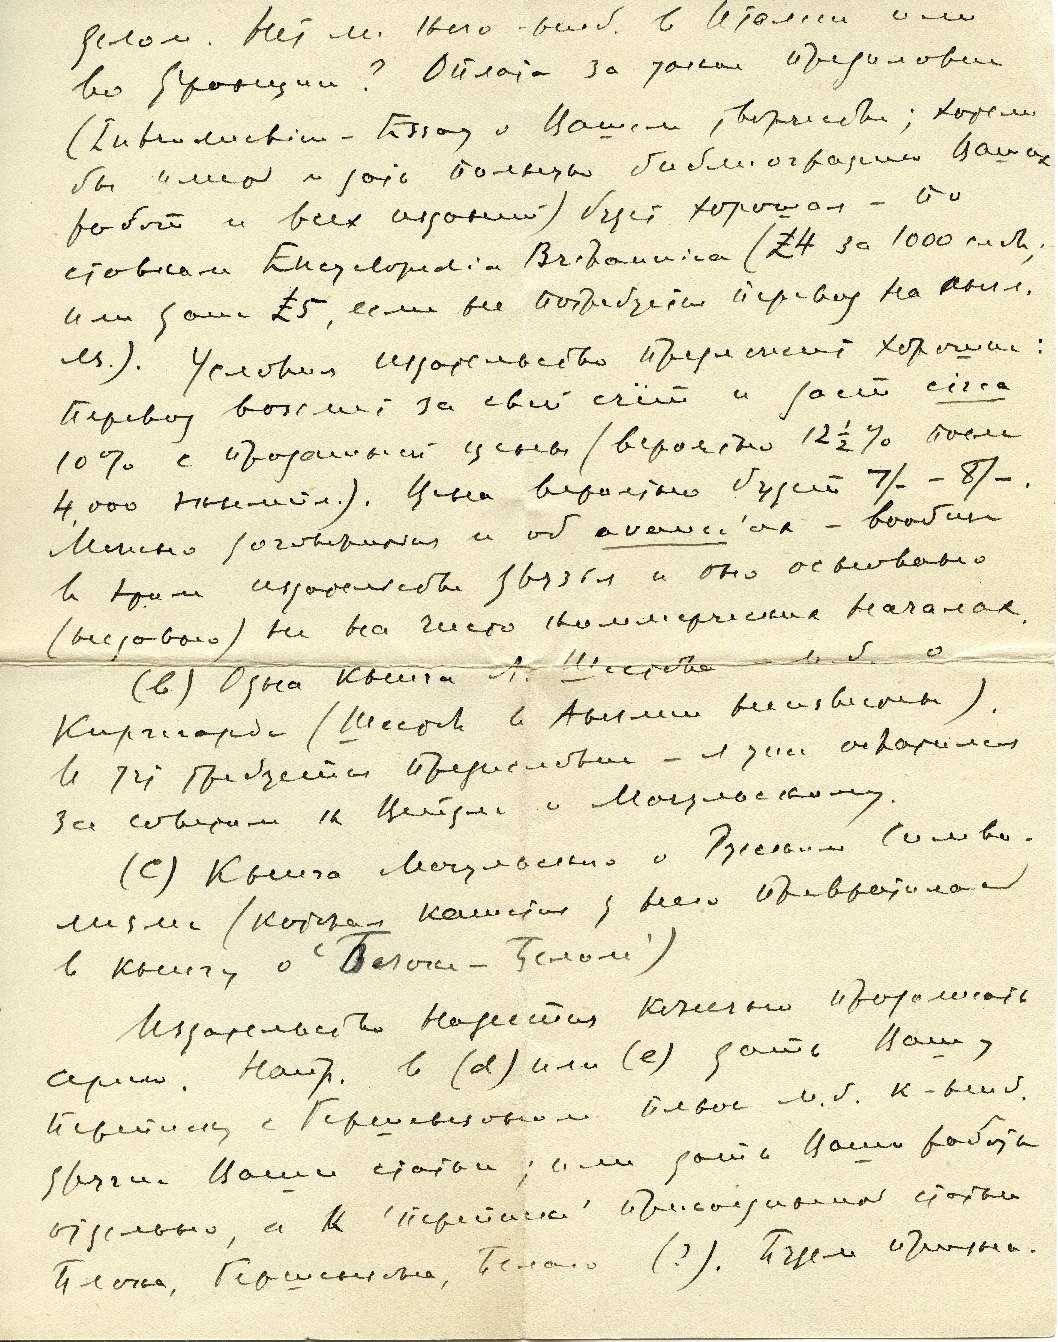 делом. Нет ли кого-ниб. в Италии или
во Франции? Оплата за такое предисловие
(Introduction – Essay о Вашем творчестве; хотели
бы иметь и дать полную библиографию Ваших
работ и всех изданий) будет хорошая – по
ставкам Encyclopedia Britannica (£4 за 1000 слов,
или даже £5, если не потребуется перевод на англ.
яз.). Условия издательство предложит хорошие:
перевод возьмет за свой счёт и даст circa
10% с продажной цены (вероятно 12½% после
4,000 экземпл.). Цена вероятно будет 7/- – 8/-.
Можно договориться и об avance'ах – вообще
в этом издательстве друзья и оно основано
(недавно) не на чисто коммерческих началах.
(b) Одна книга Л. Шестова – м.б. о
Киркегарде (Шестов в Англии неизвестен).
И тут требуется предисловие – я уже обратился
за советом к Цетлин и Мочульскому.
(c) Книга Мочульского о Русском Симво-
лизме (которая кажется у него превратилась
в книгу о 'Блоке – Белом')
Издательство надеется конечно продолжать
серию. Напр. в (d) или (e) дать Вашу
переписку с Гершензоном плюс м.б. к-ниб.
другие Ваши статьи; или дать Ваши работы
отдельно, а к 'переписке' присоединить статьи
Блока, Гершензона, Белого (?). Будем призна-